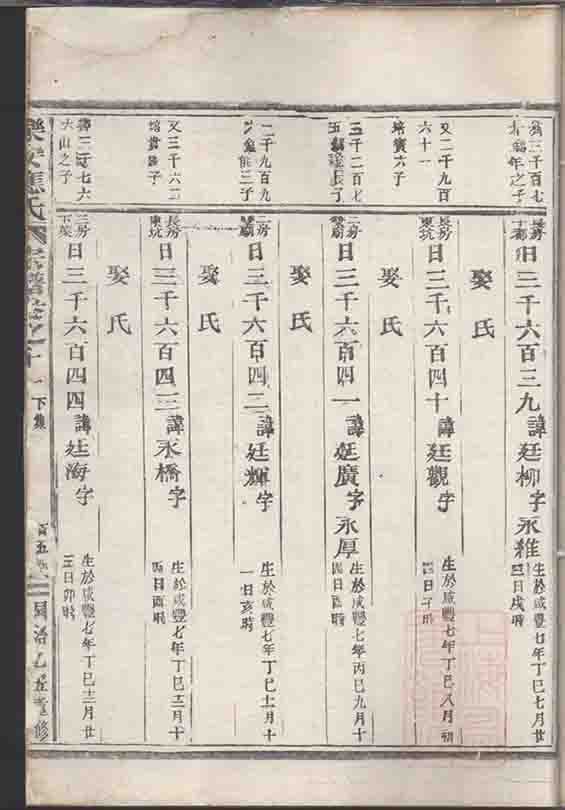 三千百七
年之子
長房
日三千六百三九諱廷柳字永雜
生於咸豐七年丁巳七月廿
四日戌時
娶氏
又二千九百
六十一
培寶六子
長房
東坑
日三千六百四十諱廷觀字
生於咸豐七年丁巳八月初
娶氏
三千二百七
五
長子
二房
日三千六百四一諱廷廣字永厚
生於咸豐七年丙巳九月十
四日酉時
娶氏
二千九百九
三子
二房
日三千六百四二諱廷輝字
生於咸豐七年丁巳十一月十
一日亥時
娶氏
又三千六二
培貴
子
長房
東坑
日三千六百四三諱永橋字
生於咸豐七年丁巳十二月十
四日酉時
娶氏
三千七六
大山之子
三房
下菜
日三千六百四四諱廷海字
生於咸豐七年丁巳十二月廿
三日卯時
樂安應氏宗譜卷之十
下集
同治乙丑重修